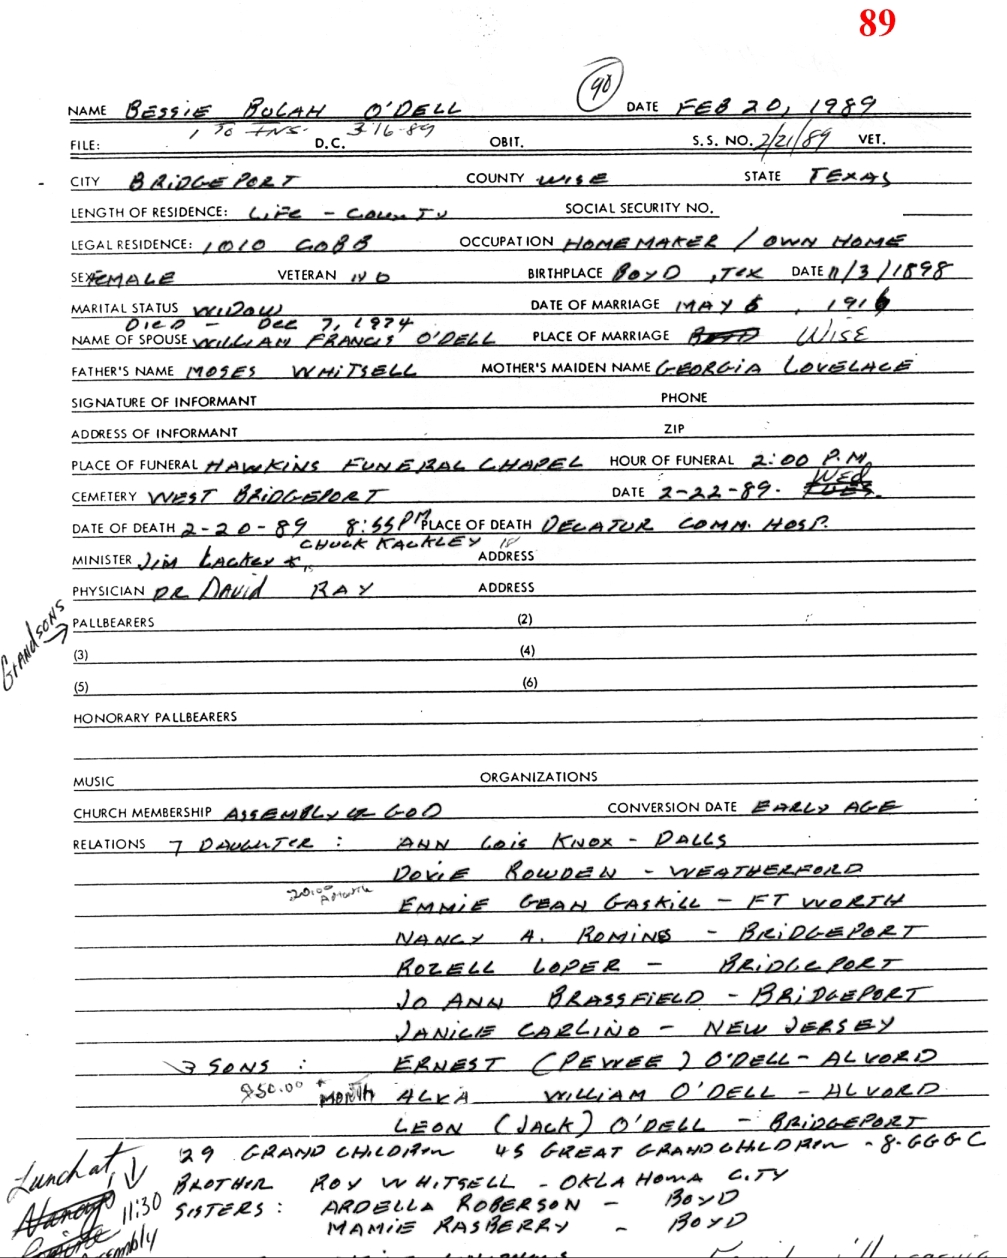 89
90
NAME BESSIE BULAH O'DELL DATE FEB 20, 1989
1 TO INS. 3-16-89
FILE: D.C. OBIT. S.S. NO. 2/21/89 VET.
CITY BRIDGEPORT COUNTY WISE STATE TEXAS
LENGTH OF RESIDENCE: LIFE - COUNTY SOCIAL SECURITY NO.
LEGAL RESIDENCE: 1010 COBB OCCUPATION HOMEMAKER / OWN HOME
SEX FEMALE VETERAN NO BIRTHPLACE BOYD, TEX DATE 11/3/1898
MARITAL STATUS WIDOW DATE OF MARRIAGE MAY 8, 1916
DIED - DEC 7, 1974
NAME OF SPOUSE WILLIAM FRANCIS O'DELL PLACE OF MARRIAGE BOYD WISE
FATHER'S NAME MOSES WHITSELL MOTHER'S MAIDEN NAME GEORGIA LOVELACE
SIGNATURE OF INFORMANT PHONE
ADDRESS OF INFORMANT ZIP
PLACE OF FUNERAL HAWKINS FUNERAL CHAPEL HOUR OF FUNERAL 2:00 P.M.
CEMETERY WEST BRIDGEPORT DATE 2-22-89. TUES. WED
DATE OF DEATH 2-20-89 8:55 PM PLACE OF DEATH DECATUR COMM. HOSP.
CHUCK KACKLEY
MINISTER JIM LACKEY & ADDRESS
PHYSICIAN DR DAVID RAY ADDRESS
GRANDSONS → PALLBEARERS (2)
(3) (4)
(5) (6)
HONORARY PALLBEARERS
MUSIC ORGANIZATIONS
CHURCH MEMBERSHIP ASSEMBLY OF GOD CONVERSION DATE EARLY AGE
RELATIONS 7 DAUGHTER : ANN LOIS KNOX - DALLS
DOVIE ROWDEN - WEATHERFORD
20.00 A MONTH
EMMIE GEAN GASKILL - FT WORTH
NANCY A. ROMINE - BRIDGEPORT
ROZELL LOPER - BRIDGEPORT
JO ANN BRASSFIELD - BRIDGEPORT
JANICE CARLINO - NEW JERSEY
3 SONS : ERNEST (PEWEE) O'DELL - ALVORD
$50.00 MONTH ALVA WILLIAM O'DELL - ALVORD
LEON (JACK) O'DELL - BRIDGEPORT
29 GRAND CHILDREN 45 GREAT GRANDCHILDREN - 8-GGGC
BROTHER ROY WHITSELL - OKLAHOMA CITY
SISTERS : ARDELLA ROBERSON - BOYD
MAMIE RASBERRY - BOYD
Lunch at
11:30